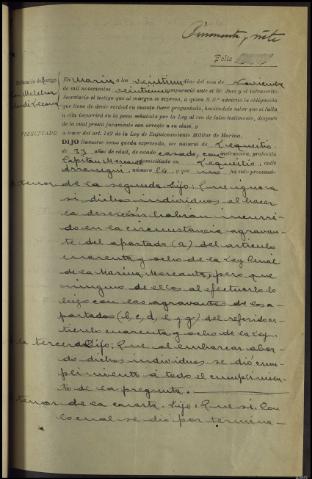 Folio
En Marín a los veintiun días del mes de
de mil novecientos veintiuno preparado ante el Sr. Juez y el infrascrito
Secretario el testigo que al margen se expresa, a quien S. Sª advirtió la obligación
que tiene de decir verdad en cuanto fuere preguntado, haciéndole saber que si falta
a ella incurrirá en la pena señalada por la Ley al reo de falso testimonio, después
de lo cual prestó juramento con arreglo a su clase, y
a tenor del art. 142 de la Ley de Enjuiciamiento Militar de Marina.
DIJO llamarse como queda expresado, ser natural de Lequeitio
de 33 años de edad, de estado casado, con instrucción, profesión
Capitán domiciliado en Lequeitio, calle
número 14 y que no ha sido procesado
tenor de la segunda dijo: Que ignora
si dichos individuos al hacer
la deserción habian incurri-
do en la circunstancia agravan-
te del apartado (a) del artículo
cuarenta y ocho de la Ley Penal
de la Marina Mercante, pero que
ninguno de ellos al efectuarlo lo
hizo con las agravantes de los a-
partados (b, c, d, e y g) del referido ar-
tículo cuarenta y ocho de la Ley.
la tercera dijo: Que al embarcar abor-
do dichos individuos se dió cum-
plimiento a todo el cumplimien-
to de la pregunta.
tenor de la cuarta dijo: Que si. Con
lo cual se dió por termina-